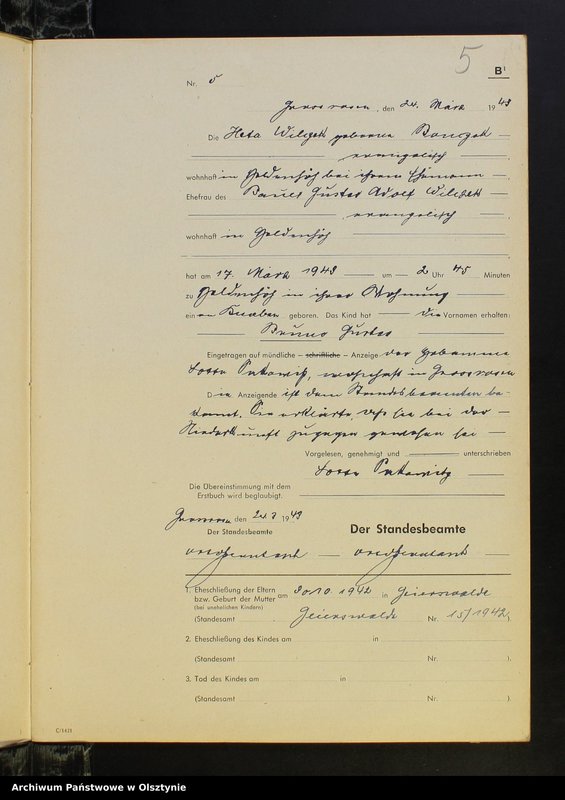 5
B¹
Nr. 5
, den 24. März 1943
Die Herta Wilczek geborene
evangelisch
wohnhaft in Geldenhöh bei ihrem Ehemann
Ehefrau des Gustav Adolf Wilczek
evangelisch
wohnhaft in Geldenhöh
hat am 17. März 1943 um 2 Uhr 45 Minuten
zu Geldenhöh in ihrer Wohnung
einen Knaben geboren. Das Kind hat die Vornamen erhalten:
Bruno Gustav
Eingetragen auf mündliche – schriftliche – Anzeige der Hebamme
wohnhaft in
Die Anzeigende ist dem Standesbeamten be-
kannt. Sie erklärte, daß sie bei der
Niederkunft zugegen gewesen sei
Vorgelesen, genehmigt und unterschrieben
Die Übereinstimmung mit dem
Erstbuch wird beglaubigt.
den 24.3 1943
Der Standesbeamte
Der Standesbeamte
1. Eheschließung der Eltern
bzw. Geburt der Mutter am 30.10.1942 in Geierswalde
(bei unehelichen Kindern)
(Standesamt Geierswalde Nr. 15/1942).
2. Eheschließung des Kindes am in
(Standesamt Nr. ).
3. Tod des Kindes am in
(Standesamt Nr. ).
C/1421
Archiwum Państwowe w Olsztynie